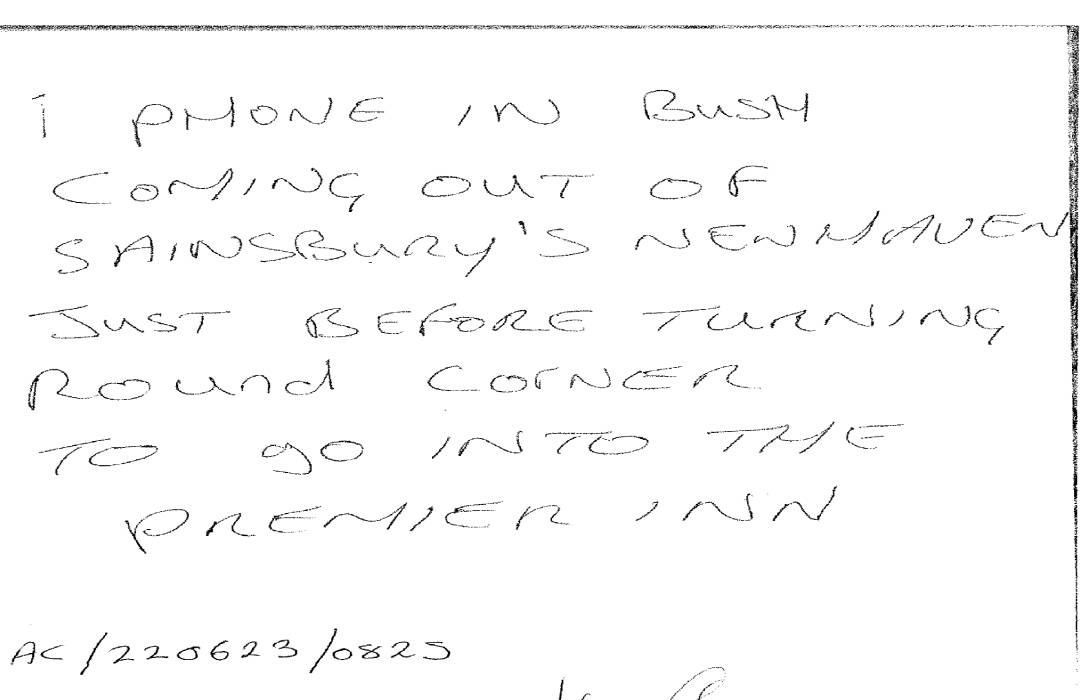 i PHONE IN BUSH
COMING OUT OF
SAINSBURY'S NEWHAVEN
JUST BEFORE TURNING
ROUnd CorNER
TO go INTO THE
PREMIER INN
AC/220623/0825